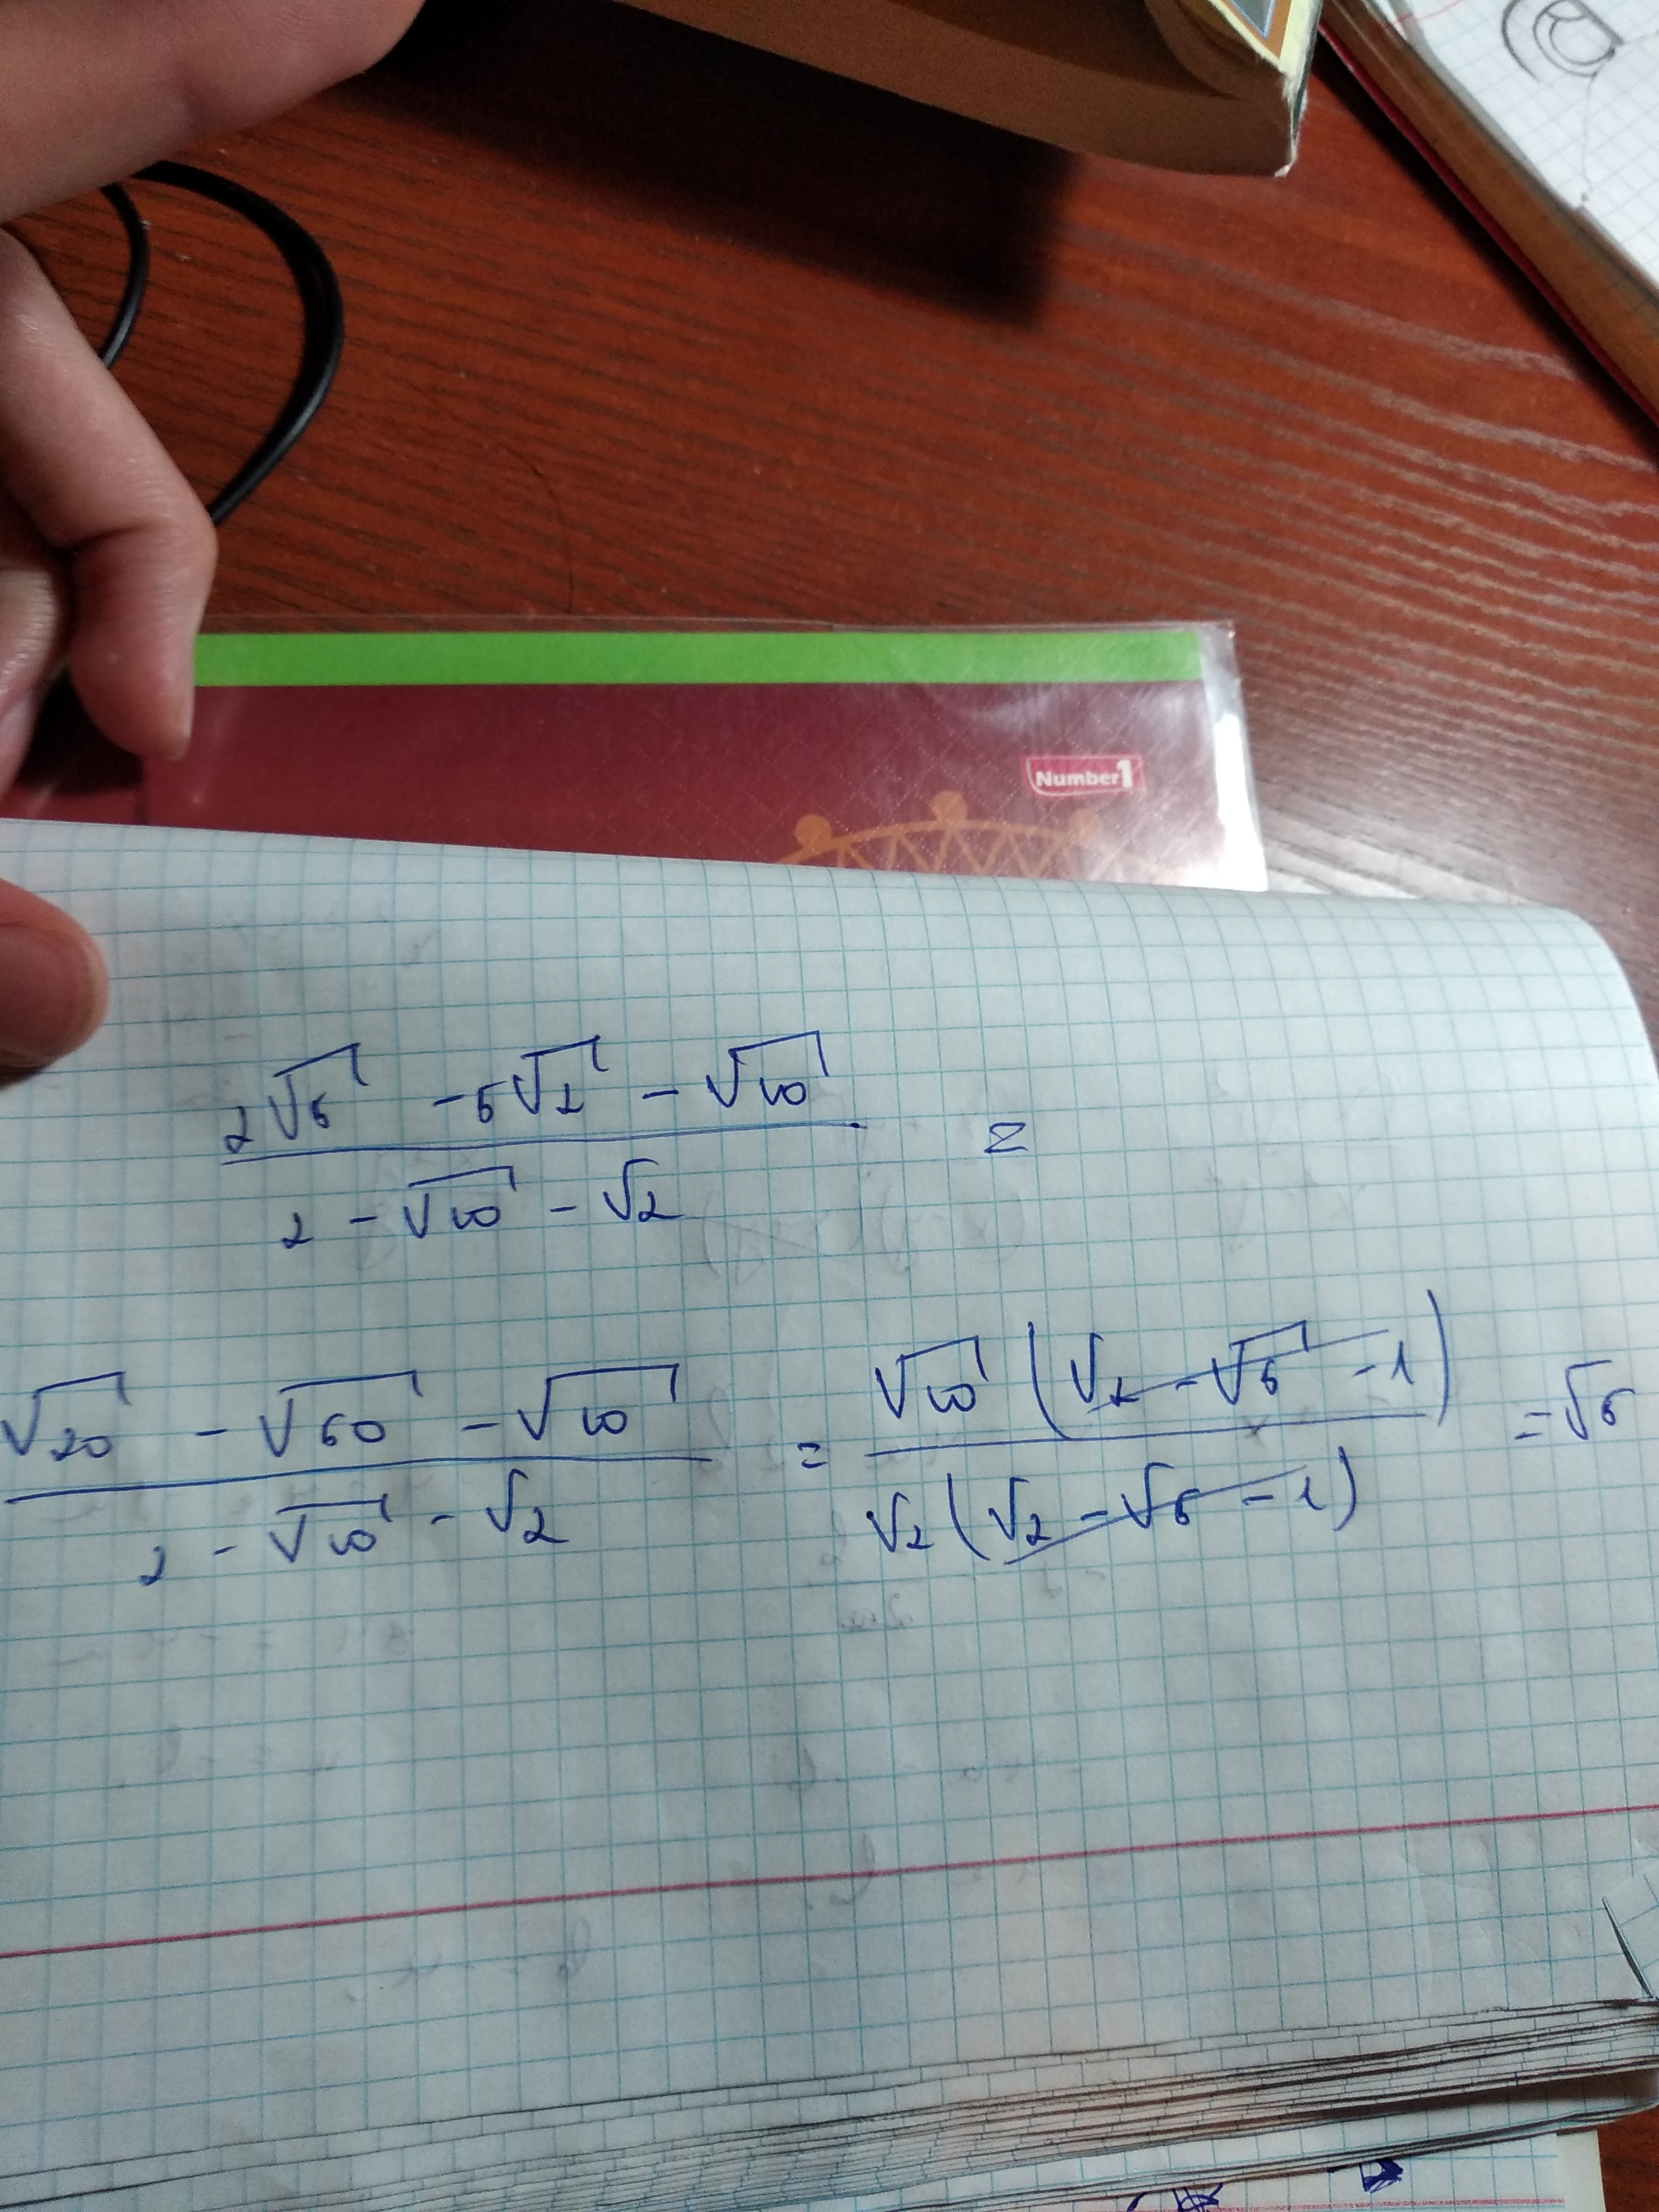 Number 1
(2√5 - 5√2 - √10) / (2 - √10 - √2) =
(√20 - √50 - √10) / (2 - √10 - √2) = (√10 (√2 - √5 - 1)) / (√2 (√2 - √5 - 1)) = √5